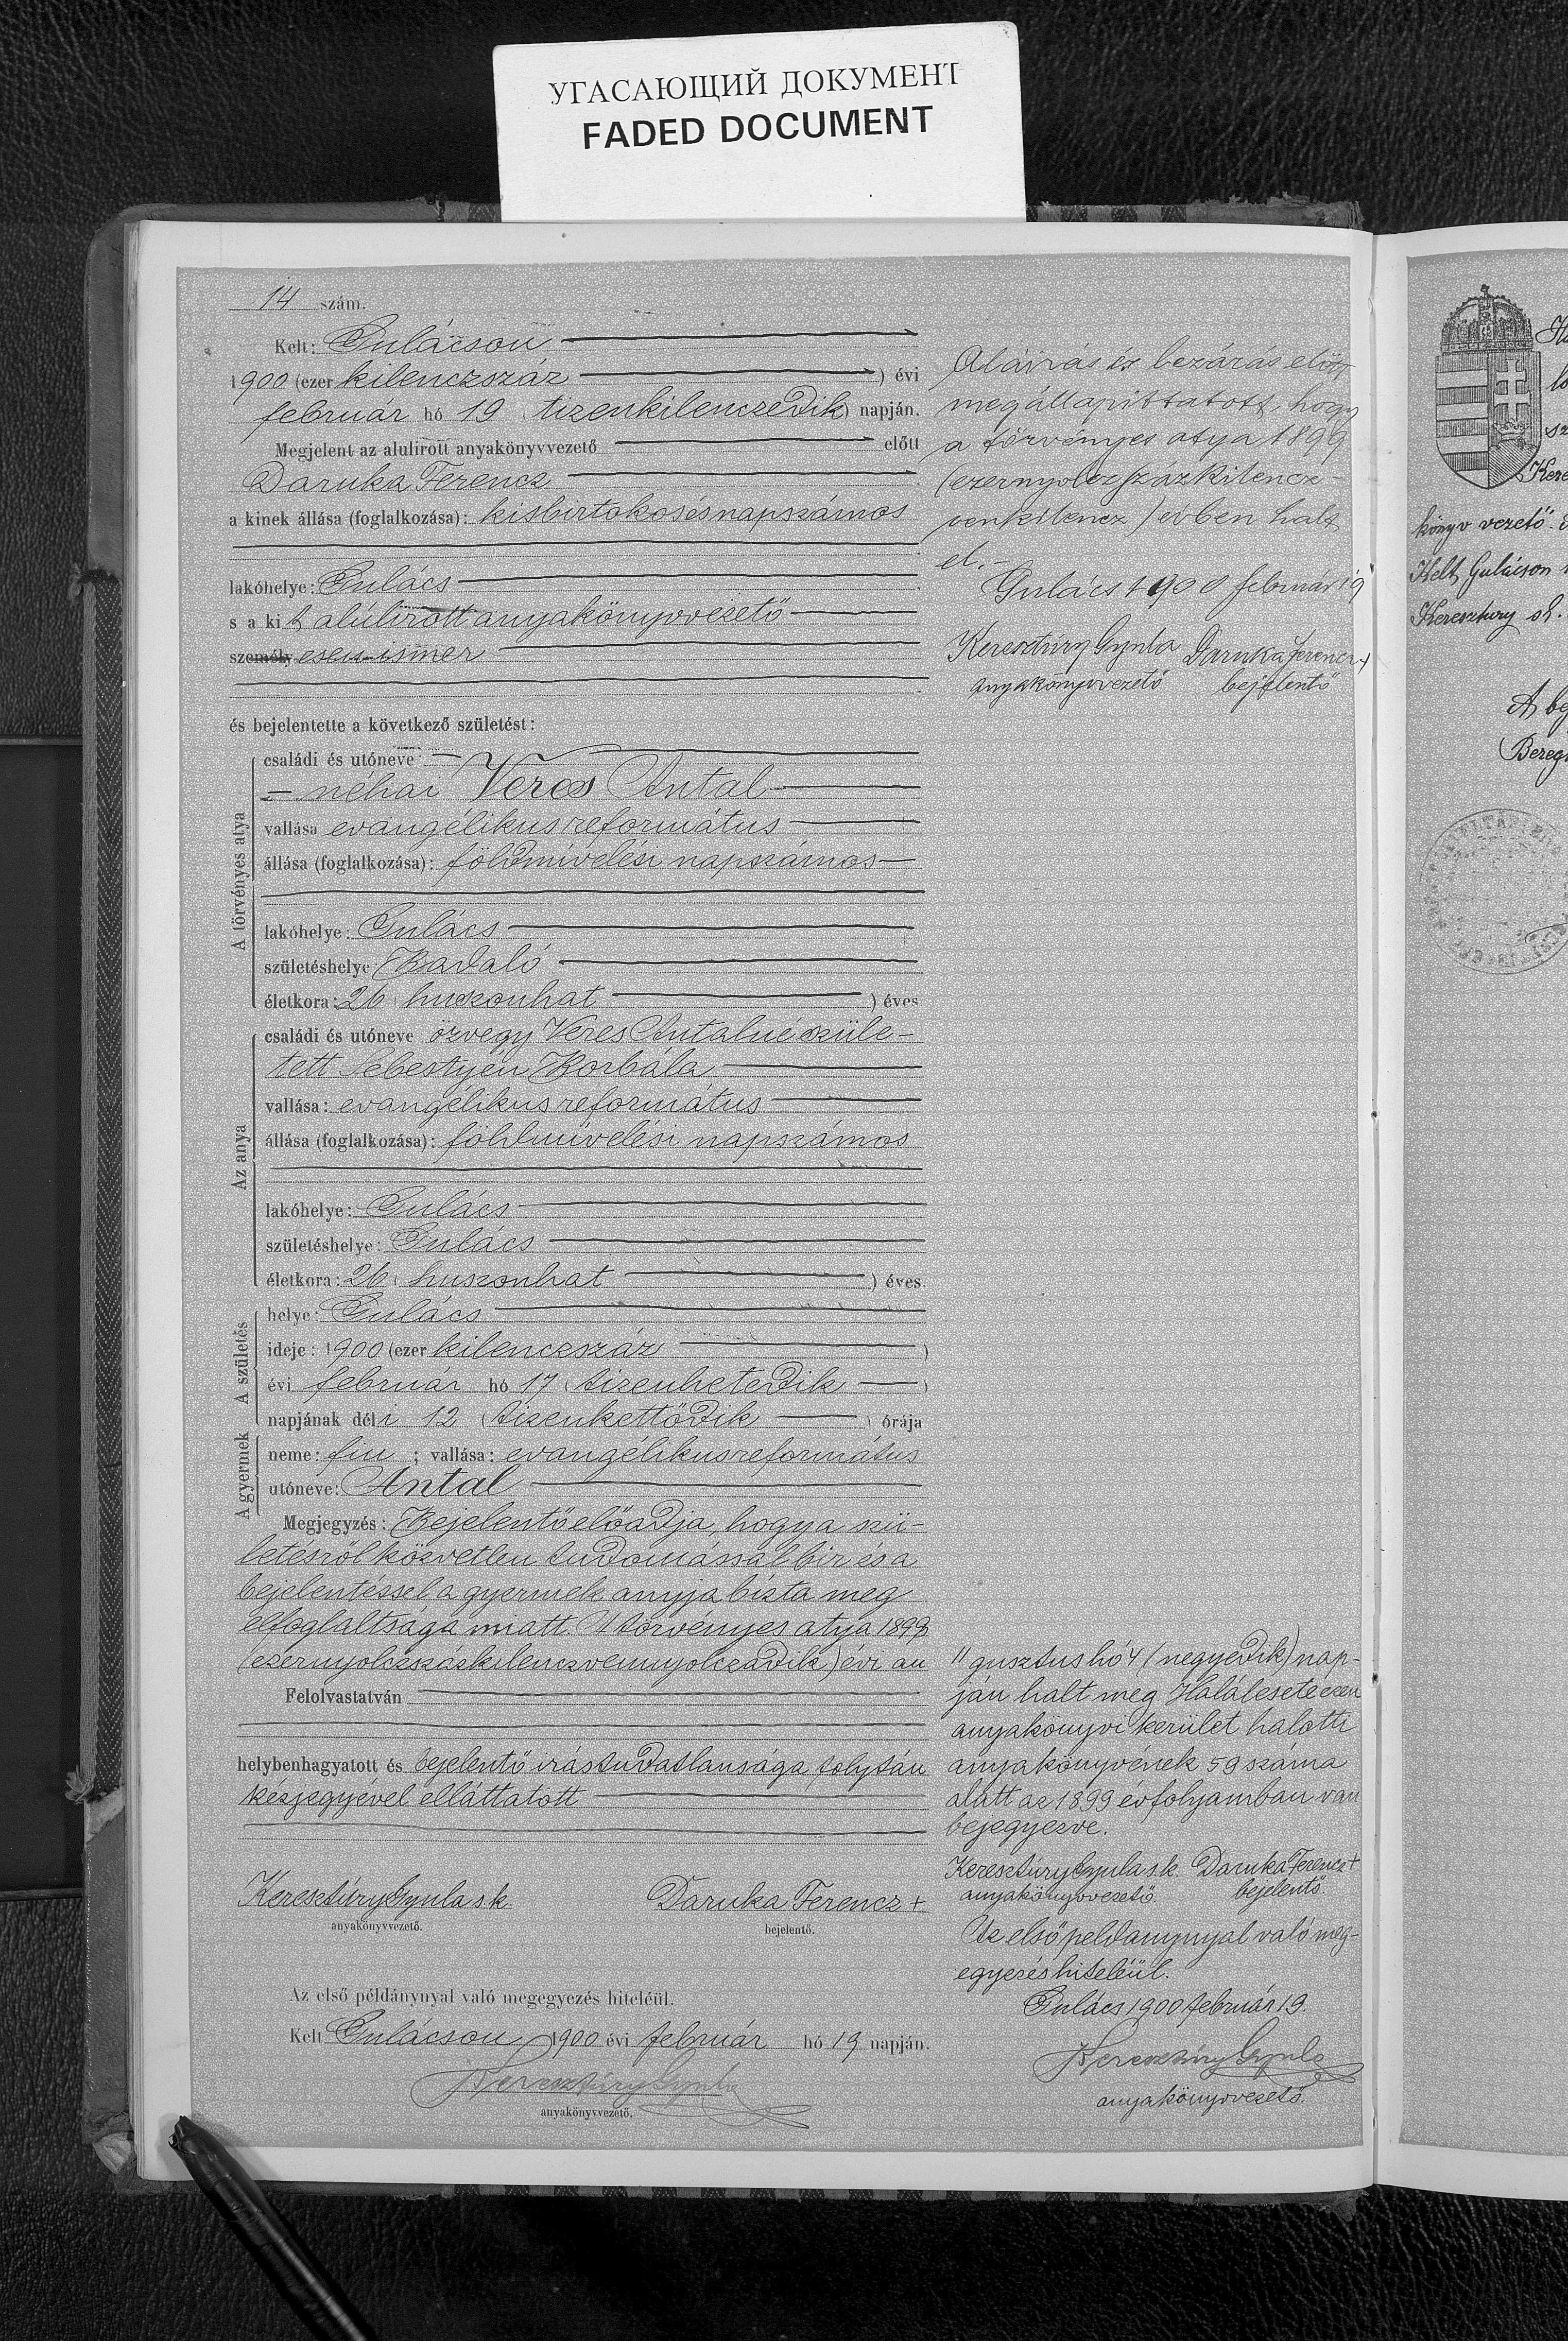 УГАСАЮЩИЙ ДОКУМЕНТ
FADED DOCUMENT
14 szám.
Kelt: Gulácson
1900 (ezer kilenczszáz ) évi
február hó 19 ( tizenkilenczedik ) napján.
Megjelent az alulirott anyakönyvvezető előtt
Daruka Ferencz
a kinek állása (foglalkozása): kisbirtokos és napszámos
lakóhelye: Gulács
s a kit alúlirott anyakönyvvezető
személyesen ismer
és bejelentette a következő születést:
A törvényes atya
családi és utóneve:
néhai Veres Antal
vallása evangélikus református
állása (foglalkozása): földmívelési napszámos
lakóhelye: Gulács
születéshelye Badaló
életkora: 26 ( huszonhat ) éves
Az anya
családi és utóneve özvegy Veres Antalné szüle-
tett Sebestyén Borbála
vallása: evangélikus református
állása (foglalkozása): földmívelési napszámos
lakóhelye: Gulács
születéshelye: Gulács
életkora: 26 ( huszonhat ) éves.
A születés
helye: Gulács
ideje: 1900 (ezer kilenczszáz )
évi február hó 17 ( tizenhetedik )
napjának déli 12 ( tizenkettődik ) órája
A gyermek
neme: fiu ; vallása: evangélikus református
utóneve: Antal
Megjegyzés: Bejelentő előadja, hogy a szü-
letésről közvetlen tudomással bir és a
bejelentéssel a gyermek anyja bízta meg
elfoglaltsága miatt. A törvényes atya 1898
(ezernyolczszázkilenczvennyolczadik) évi au
Felolvastatván
helybenhagyatott és bejelentő irástudatlansága folytán
kézjegyével elláttatott
Keresztúry Gyula s.k.
anyakönyvvezető.
Daruka Ferencz +
bejelentő.
Az első példánynyal való megegyezés hiteléül.
Kelt Gulácson 1900 évi február hó 19 napján.
Keresztúry Gyula
anyakönyvvezető.
Aláirás és bezárás előtt
megállapittatott, hogy
a törvényes atya 1899
(ezernyolczszázkilencz-
venkilencz) évben halt
el.-
Gulács 1900 február 19
Keresztúry Gyula Daruka Ferencz +
anyakönyvvezető bejelentő
" gusztus hó 4 (negyedik) nap-
ján halt meg. Halálesete ezen
anyakönyvi kerület halotti
anyakönyvének 59 száma
alatt az 1899 évfolyamban van
bejegyezve.
Keresztúry Gyula s.k. Daruka Ferencz +
anyakönyvvezető. bejelentő.
Az első peldánynyal való meg-
egyezés hiteléül.
Gulács 1900 február 19.
Keresztúry Gyula
anyakönyvvezető.
könyv vezető.
Kelt Gulácson
Keresztury sk.
A
Bereg